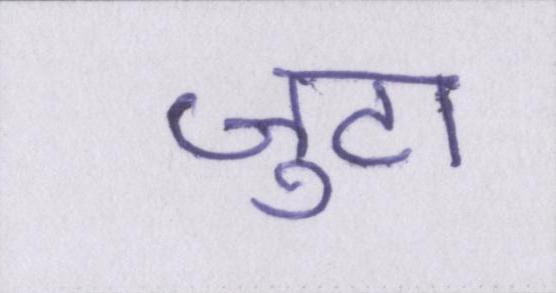 जुटा